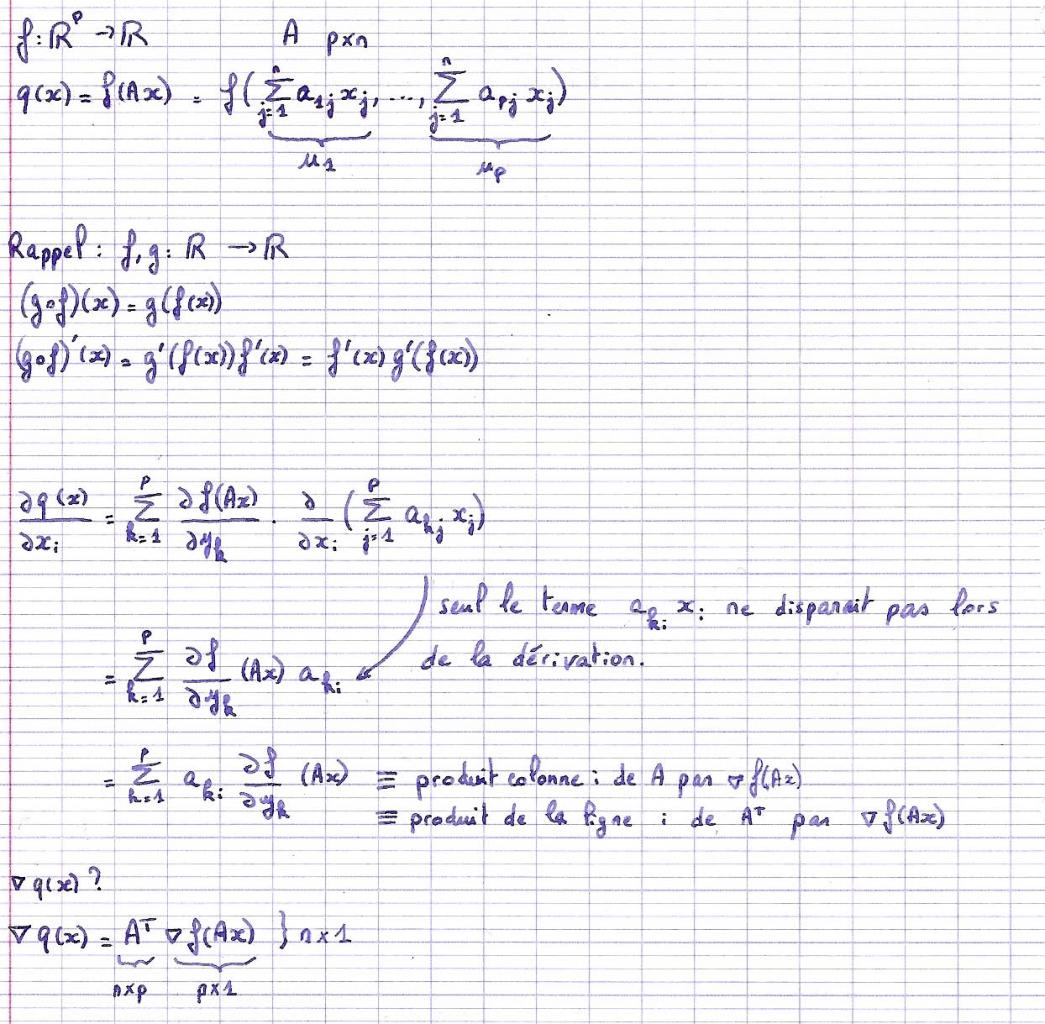 f : ℝᵖ → ℝ   A p×n
q(x) = f(Ax) = f( ∑_{j=1}^{n} a_{1j} x_j, ..., ∑_{j=1}^{n} a_{pj} x_j )
μ_1   μ_p
Rappel : f, g : ℝ → ℝ
(g∘f)(x) = g(f(x))
(g∘f)'(x) = g'(f(x)) f'(x) = f'(x) g'(f(x))
∂q(x)/∂x_i = ∑_{k=1}^{p} ∂f(Ax)/∂y_k · ∂/∂x_i ( ∑_{j=1}^{p} a_{kj} x_j )
seul le terme a_{ki} x_i ne disparait pas lors
de la dérivation.
= ∑_{k=1}^{p} ∂f/∂y_k (Ax) a_{ki}
= ∑_{k=1}^{p} a_{ki} ∂f/∂y_k (Ax) ≡ produit colonne i de A par ∇f(Ax)
≡ produit de la ligne i de Aᵀ par ∇f(Ax)
∇q(x) ?
∇q(x) = Aᵀ ∇f(Ax) } n×1
n×p   p×1